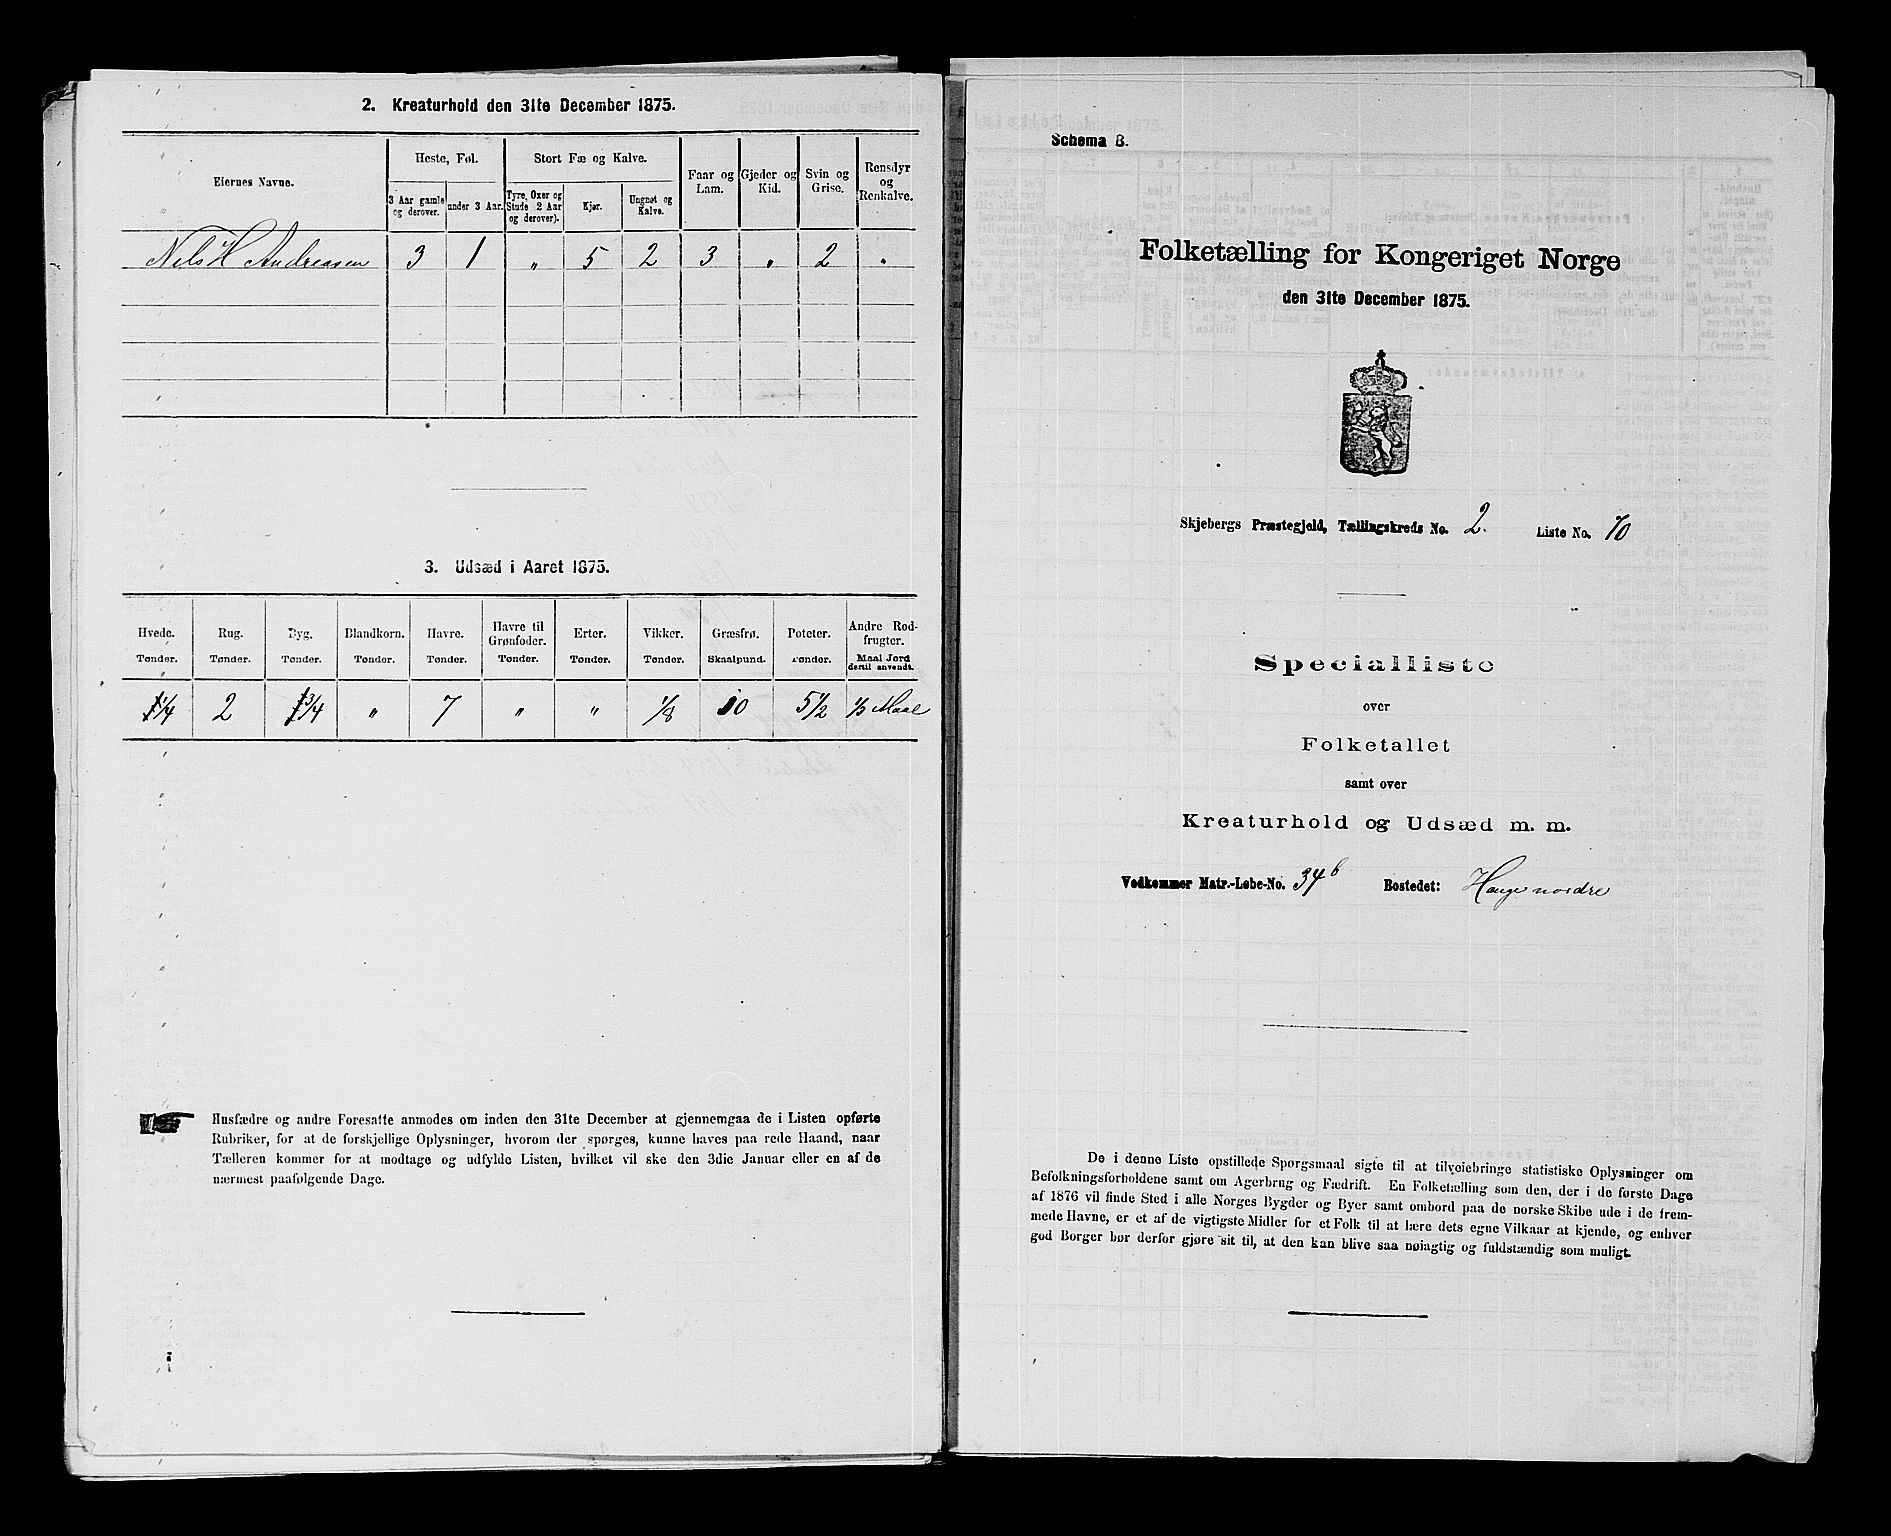 2. Kreaturhold den 31te December 1875.
Eiernes Navne.
Heste, Føl.
Stort Fæ og Kalve.
Faar og Lam.
Gjeder og Kid.
Svin og Grise.
Rensdyr og Renkalve.
3 Aar gamle og derover.
under 3 Aar.
Tyre, Oxer og Stude 2 Aar og derover).
Kjør.
Ungnøt og Kalve.
Nils H Andreasen 3 1 „ 5 2 3 „ 2 „
3. Udsæd i Aaret 1875.
Hvede. Rug. Byg. Blandkorn. Havre. Havre til Grønfoder. Erter. Vikker. Græsfrø. Poteter. Andre Rodfrugter.
Tønder. Tønder. Tønder. Tønder. Tønder. Tønder. Tønder. Tønder. Skaalpund. Tønder. Maal Jord dertil anvendt.
1/4 2 3/4 „ 7 „ „ 1/8 10 5 1/2 1/3 Maal
Husfædre og andre Foresatte anmodes om inden den 31te December at gjennemgaa de i Listen opførte
Rubriker, for at de forskjellige Oplysninger, hvorom der spørges, kunne haves paa rede Haand, naar
Tælleren kommer for at modtage og udfylde Listen, hvilket vil ske den 3die Januar eller en af de
nærmest paafølgende Dage.
Schema B.
Folketælling for Kongeriget Norge
den 31te December 1875.
Skjebergs Præstegjeld, Tællingskreds No. 2. Liste No. 70
Specialliste
over
Folketallet
samt over
Kreaturhold og Udsæd m. m.
Vedkommer Matr.-Løbe-No. 34b Bostedet: Hauge nordre
De i denne Liste opstillede Spørgsmaal sigte til at tilveiebringe statistiske Oplysninger om
Befolkningsforholdene samt om Agerbrug og Fædrift. En Folketælling som den, der i de første Dage
af 1876 vil finde Sted i alle Norges Bygder og Byer samt ombord paa de norske Skibe ude i de frem-
mede Havne, er et af de vigtigste Midler for et Folk til at lære dets egne Vilkaar at kjende, og enhver
god Borger bør derfor gjøre sit til, at den kan blive saa nøiagtig og fuldstændig som muligt.